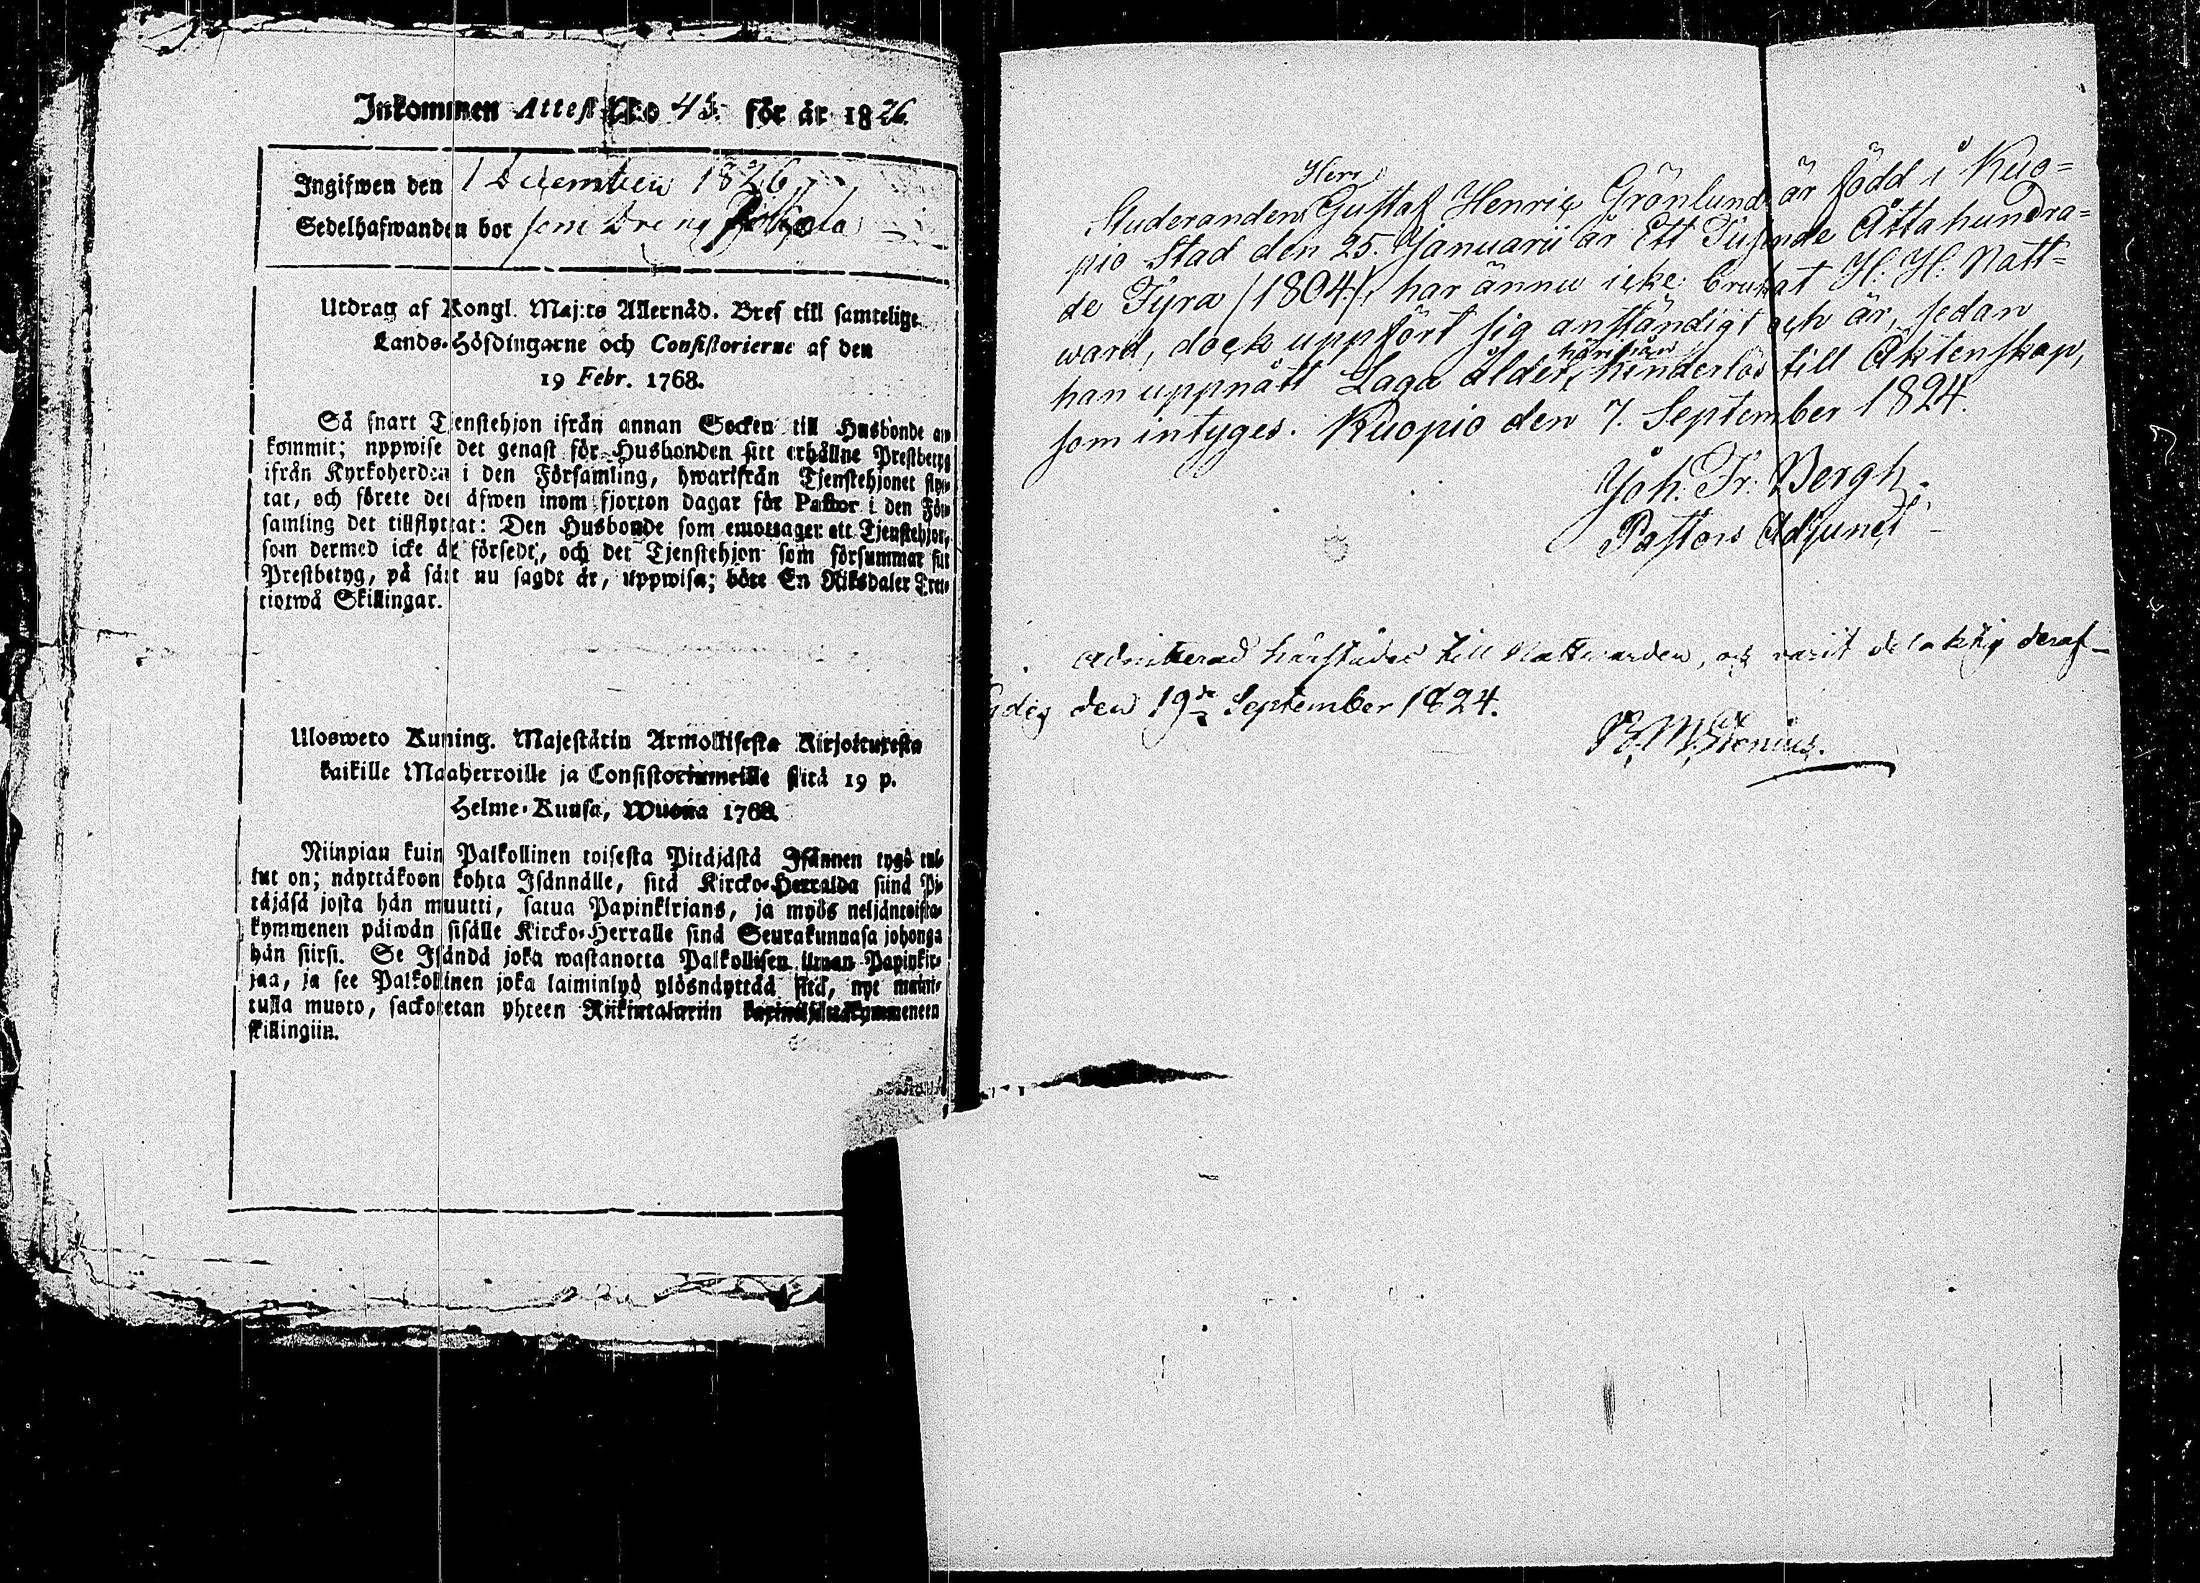 Inkommen Attest N:o 43. för år 1826.
Ingifwen den 1 December 1826
Sedelhafwanden bor som Dreng
Utdrag af Kongl. Maj:ts Allernåd. Bref till samtelige
Lands-Höfdingarne och Consistorierne af den
19 Febr. 1768.
Så snart Tjenstehjon ifrån annan Socken till Husbonde an-
kommit; uppwise det genast för Husbonden sitt erhållne Prestbetyg
ifrån Kyrkoherden i den Församling, hwarifrån Tjenstehjonet flyt-
tat, och förete det äfwen inom fjorton dagar för Pastor i den För-
samling det tillflyttat: Den Husbonde som emottager ett Tjenstehjon,
som dermed icke är försedt, och det Tjenstehjon som försummar sitt
Prestbetyg, på sätt nu sagdt är, uppwisa; böte En Riksdaler Tret-
tiotwå Skillingar.
Ulosweto Kuning. Majestätin Armollisesta Kirjoituxesta
kaikille Maaherroille ja Consistoriumeille sitä 19 p.
Helme-Kuusa, Wuona 1768.
Niinpian kuin Palkollinen toisesta Pitäjästä Isännen tygö tul-
lut on; näyttäkoon kohta Isännälle, sitä Kircko-Herralda siinä Pi-
täjäsä josta hän muutti, satua Papinkirjans, ja myös neljäntoista-
kymmenen päiwän sisälle Kircko-Herralle sinä Seurakunnasa johonga
hän siirsi. Se Isändä joka wastanotta Palkollisen ilman Papinkir-
jaa, ja see Palkollinen joka laiminlyö ylösnäyttää sitä, nyt mainit-
tulla muoto, sackotetan yhteen Riikintalariin kaxineljättäkymmeneen
skillingiin.
Herr
Studeranden Gustaf Henric Grönlund är född i Kuo=
pio Stad den 25. Januarii år Ett Tusende Åttahundra=
de Fyra /1804/, har ännu icke brukat H. H. Natt=
ward, dock uppfört sig anständigt och är, sedan
härifrån
han uppnått Laga ålder, hinderlös till Äktenskap,
som intyges. Kuopio den 7. September 1824.
Joh. Fr. Bergh.
Pastors Adjunct
Admitterad härstädes till Nattwarden, och varit delaktig deraf
den 19de September 1824.
Stenius.